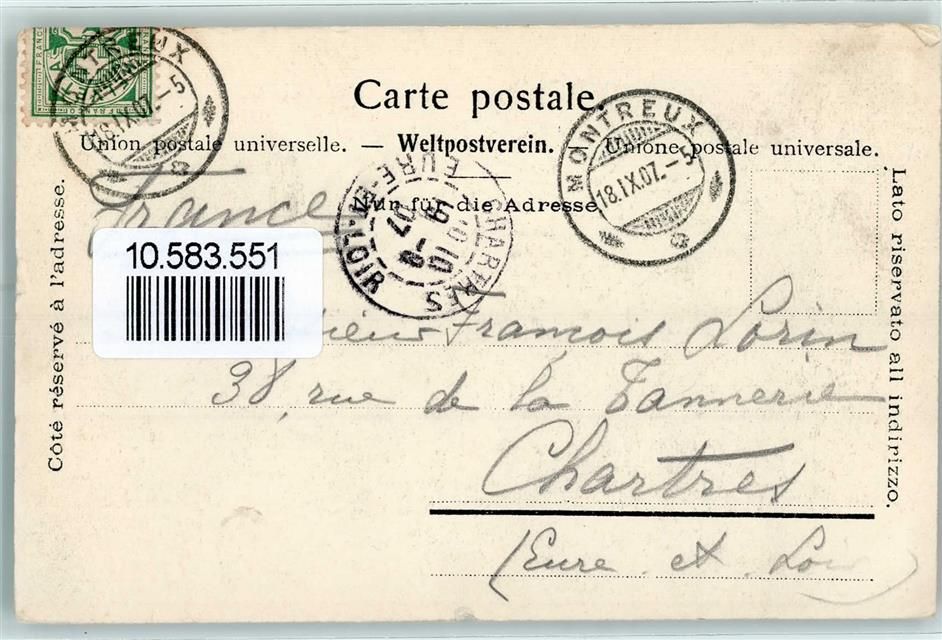 Carte postale.
Union postale universelle. — Weltpostverein. — Unione postale universale.
Nur für die Adresse.
Côté réservé à l'adresse.
Lato riservato all indirizzo.
FRANCO
MONTREUX
18.IX.07.-5
MONTREUX
18.IX.07.-5
CHARTRES
EURE-ET-LOIR
France
10.583.551
François Lorin
38, rue de la Tannerie
Chartres
(Eure et Loir)